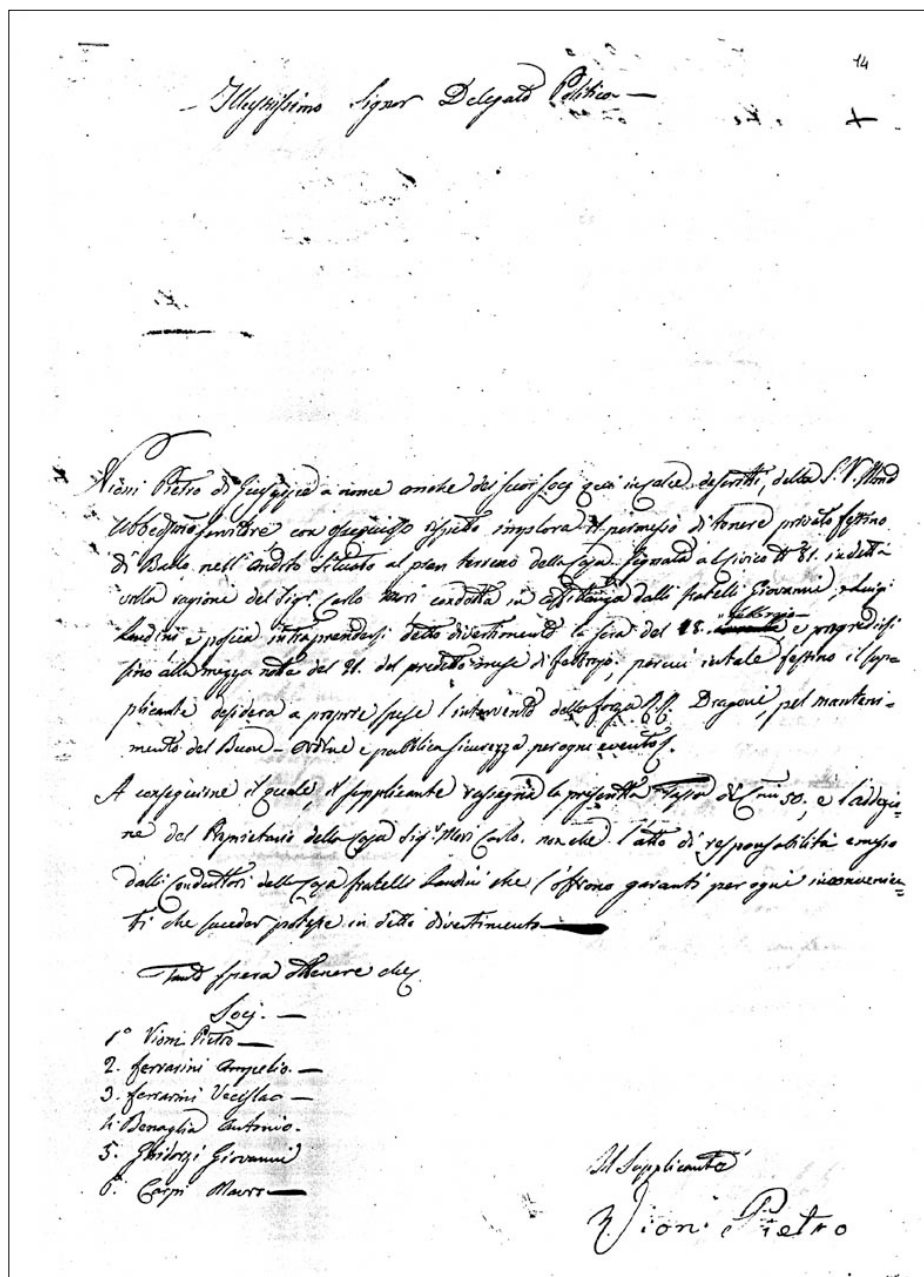 14
Illustrissimo Signor Delegato Politico
+
Vioni Pietro di a nome anche dei suoi Socj qui in calce descritti, della S. V. Illma
servitore con ossequioso rispetto implora il permesso di tenere privato festino
di Ballo nell'andito situato al pian terreno della Casa segnata al Civico N 81. in detta
villa ragione del Sigr. Carlo Mori condotta in affittanza dalli fratelli Giovanni, e Luigi
Landini e poscia intraprendersi detto divertimento la sera del 18. febbrajo e progredirsi
sino alla mezza notte del 21. del predetto mese di febbrajo; per cui in tale festino il sup=
plicante desidera a proprie spese l'intervento della forza Dragoni, pel manteni=
mento del Buon-ordine e pubblica sicurezza per ogni evento.
A conseguire il quale, il supplicante rassegna la presente Tassa di 50, e l'adesio=
ne del Proprietario della Casa Sigr. Mori Carlo. non che l'atto di responsabilità emesso
dalli Conduttori della Casa fratelli Landini che s'offrono garanti per ogni inconvenien=
ti che succeder potesse in detto divertimento
Tanto spera ottenere
Socj.
1° Vioni Pietro
2. Ferrarini Ampelio.
3. Ferrarini
4. Benaglia Antonio.
5. Giovanni
6. Carpi Mauro
Il Supplicante
Vioni Pietro